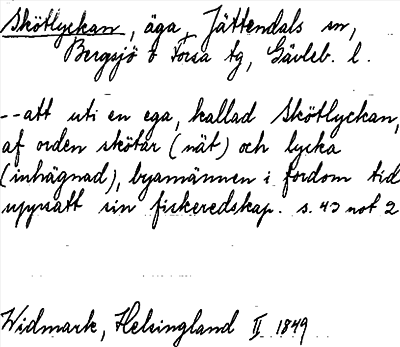 Skötlyckan, äga, Jättendals sn,
Bergsjö o Forsa tg, Gävleb. l.
--att uti en ega, kallad Skötlyckan,
af orden skötar (nät) och lycka
(inhägnad), byamännen i fordom tid
uppsatt sin fiskeredskap. s. 43 not 2
Widmark, Helsingland II 1849